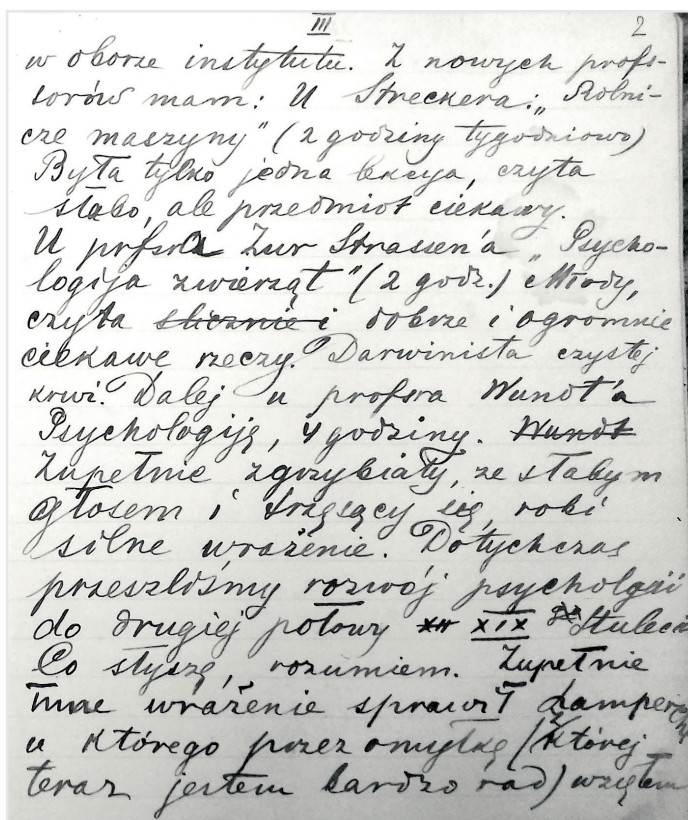 III 2
w oborze instytutu. Z nowych profe-
sorów mam: U Streckera: „Rolni-
cze maszyny" (2 godziny tygodniowo)
Była tylko jedna lekcya, czyta
słabo, ale przedmiot ciekawy.
U prfsra Zur Strassen'a „Psycho-
logija zwierząt" (2 godz.) Młody,
czyta ślicznie i dobrze i ogromnie
ciekawe rzeczy. Darwinista czystej
krwi. Dalej u profsra Wundt'a
Psychologiję, 4 godziny. Wundt
Zupełnie zgrzybiały, ze słabym
głosem i trzęsący się, robi
silne wrażenie. Dotychczas
przeszliśmy rozwój psychologii
do drugiej połowy XIX Stulecia
Co słyszę, rozumiem. Zupełnie
inne wrażenie sprawił Lamprecht
u którego przez omyłkę (z której
teraz jestem bardzo rad) wziąłem